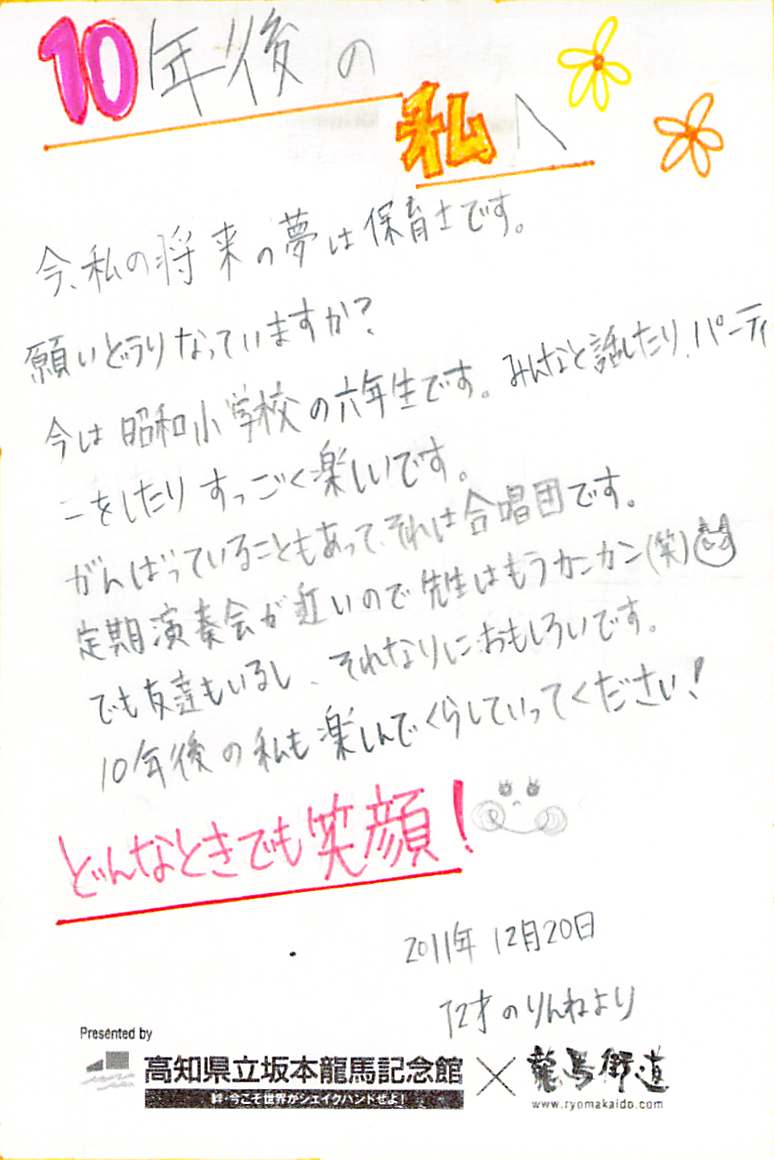 10年後の
私へ
今、私の将来の夢は保育士です。
願いどうりなっていますか？
今は昭和小学校の六年生です。みんなと話したり、パーティ
ーをしたりすっごく楽しいです。
がんばっていることもあって、それは合唱団です。
定期演奏会が近いので先生はもうカンカン(笑)
でも友達もいるし、それなりにおもしろいです。
10年後の私も楽しんでくらしていってください！
どんなときでも笑顔！
2011年12月20日
12才のりんねより
Presented by
高知県立坂本龍馬記念館×龍馬街道
絆・今こそ世界がシェイクハンドせよ！
www.ryomakaido.com